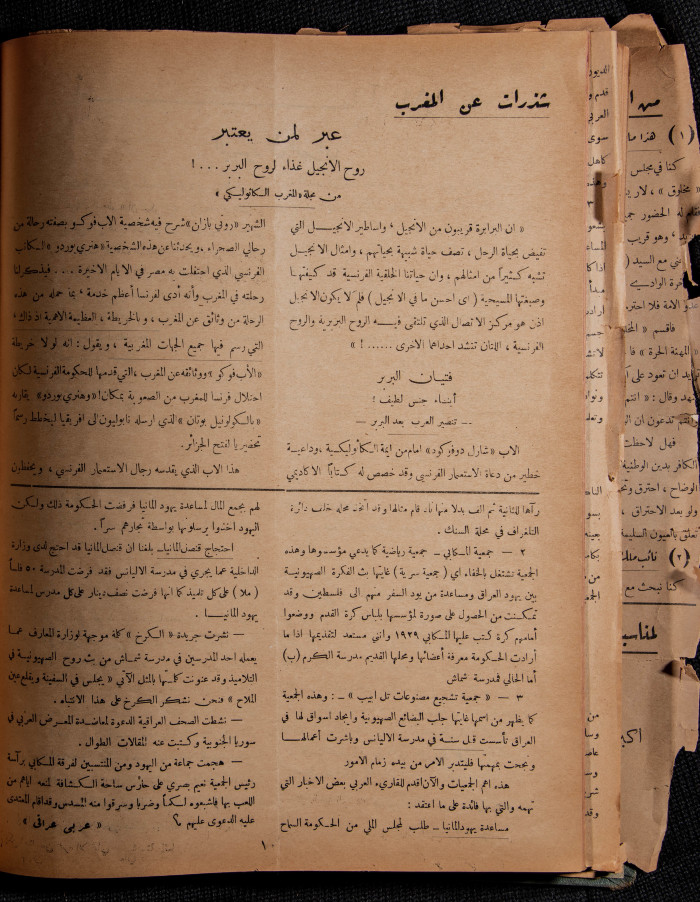 شذرات عن المغرب
عبر لمن يعتبر
روح الانجيل غذاء لروح البربر . . . !
من مجلة «المغرب الكاثوليكي»
« ان البرابرة قريبون من الانجيل ، واساطير الانجيل التي
تفيض بحياة الرحل ، تصف حياة شبيهة بحياتهم ، وامثال الانجيل
تشبه كثيراً من امثالهم ، وان حياتنا الخلقية الفرنسية قد كيفتها
وصيغتها المسيحية ( اى احسن ما في الانجيل ) فلم لا يكون الانجيل
اذن هو مركز الاتصال الذي تلتقي فيه الروح البربرية والروح
الفرنسية ، اللتان تنشد احداهما الاخرى ...... ! »
فتيان البربر
أبناء جنس لطيف !
-- تنصير العرب بعد البربر --
الاب «شارل دوفوكو» امام من ايمة الكاثوليكية ، وداعية
خطير من دعاة الاستعمار الفرنسي وقد خصص له كتاباً الاكاديمي
الشهير «رونى بازان» شرح فيه شخصية الاب فوكو بصفته رحالة من
رحالي الصحراء ، ويحدثنا عن هذه الشخصية «هنري بوردو» الكاتب
الفرنسي الذي احتفلت به مصر في الايام الاخيرة . . . فيذكر لنا
رحلته في المغرب وأنه أدى لفرنسا أعظم خدمة ، بما حمله من هذه
الرحلة من وثائق عن المغرب ، وبالخريطة ، العظيمة الاهمية اذ ذاك ،
التي رسم فيها جميع الجهات المغربية ، ويقول : انه لولا خريطة
«الأب فوكو» ووثائقه عن المغرب ، التي قدمها للحكومة الفرنسية لكان
احتلال فرنسا للمغرب من الصعوبة بمكان ! «وهنري بوردو» يقارنه
«بالكولونيل بوتان» الذي ارسله نابوليون الى افريقيا ليخطط رسماً
تحضيريا لفتح الجزائر .
هذا الاب الذي يقدسه رجال الاستعمار الفرنسي ، ويحفظون
التلغراف في محلة السنك .
٢ – جمعية المسكابي – جمعية رياضية كما يدعي مؤسسوها وهذه
الجمعية تشتغل بالخفاء اي ( جمعية سرية ) غايتها بث الفكرة الصهيونية
بين يهود العراق ومساعدة من يود السفر منهم الى فلسطين وقد
تمكنت من الحصول على صورة لمؤسسها بلباس كرة القدم ووضعوا
أمامهم كرة كتب عليها المسكابي ١٩٢٩ وانني مستعد لتقديمها اذا ما
أرادت الحكومة معرفة أعضائها ومحلها القديم مدرسة الكرم (ب)
أما الحالي فمدرسة شماش
٣ – « جمعية تشجيع مصنوعات تل ابيب » – : وهذه الجمعية
كما يظهر من اسمها غايتها جلب البضائع الصهيونية وايجاد اسواق لها في
العراق تأسست قبل سنة في مدرسة الاليانس وباشرت أعمالها
ونجحت بمهمتها فليتدبر الامر من بيده زمام الامور
هذه اهم الجمعيات والآن اقدم للقاريء العربي بعض الاخبار التي
تهمه والتي بها فائدة على ما اعتقد :
مساعدة يهود المانيا – طلب المجلس الملي من الحكومة السماح
لهم بجمع المال لمساعدة يهود المانيا فرفضت الحكومة ذلك ولكن
اليهود اخذوا يرسلونها بواسطة تجارهم سراً .
احتجاج قنصل المانيا – بلغنا ان قنصل المانيا قد احتج لدى وزارة
الداخلية عما يجري في مدرسة الاليانس فقد فرضت المدرسة ٥٠ فلساً
( ملا ) على كل تلميذ كما انها فرضت نصف دينار على كل مدرس لمساعدة
يهود المانيا .
– نشرت جريدة « الكرخ » كلمة موجهة لوزارة المعارف عما
يعمله احد المدرسين في مدرسة شماش من بث روح الصهيونية في
التلاميذ وقد عنونت كلمتها بالمثل الآتي « يجلس في السفينة ويقلع بعين
الملاح » فنحن نشكر الكرخ على هذا الانتباه .
– نشطت الصحف العراقية الدعوة لمعاضدة المعرض العربي في
سوريا الجنوبية وكتبت عنه المقالات الطوال .
– هجمت جماعة من اليهود ومن المنتسبين لفرقة المسكابي برآسة
رئيس الجمعية نعيم بصري على حارس ساحة الكشافة لمنعه اياهم من
اللعب بها فاشبعوه لكماً وضربا وسرقوا منه المسدس وقد اقام المعتدى
عليه الدعوى عليهم
« عربي عراقي »
١٠